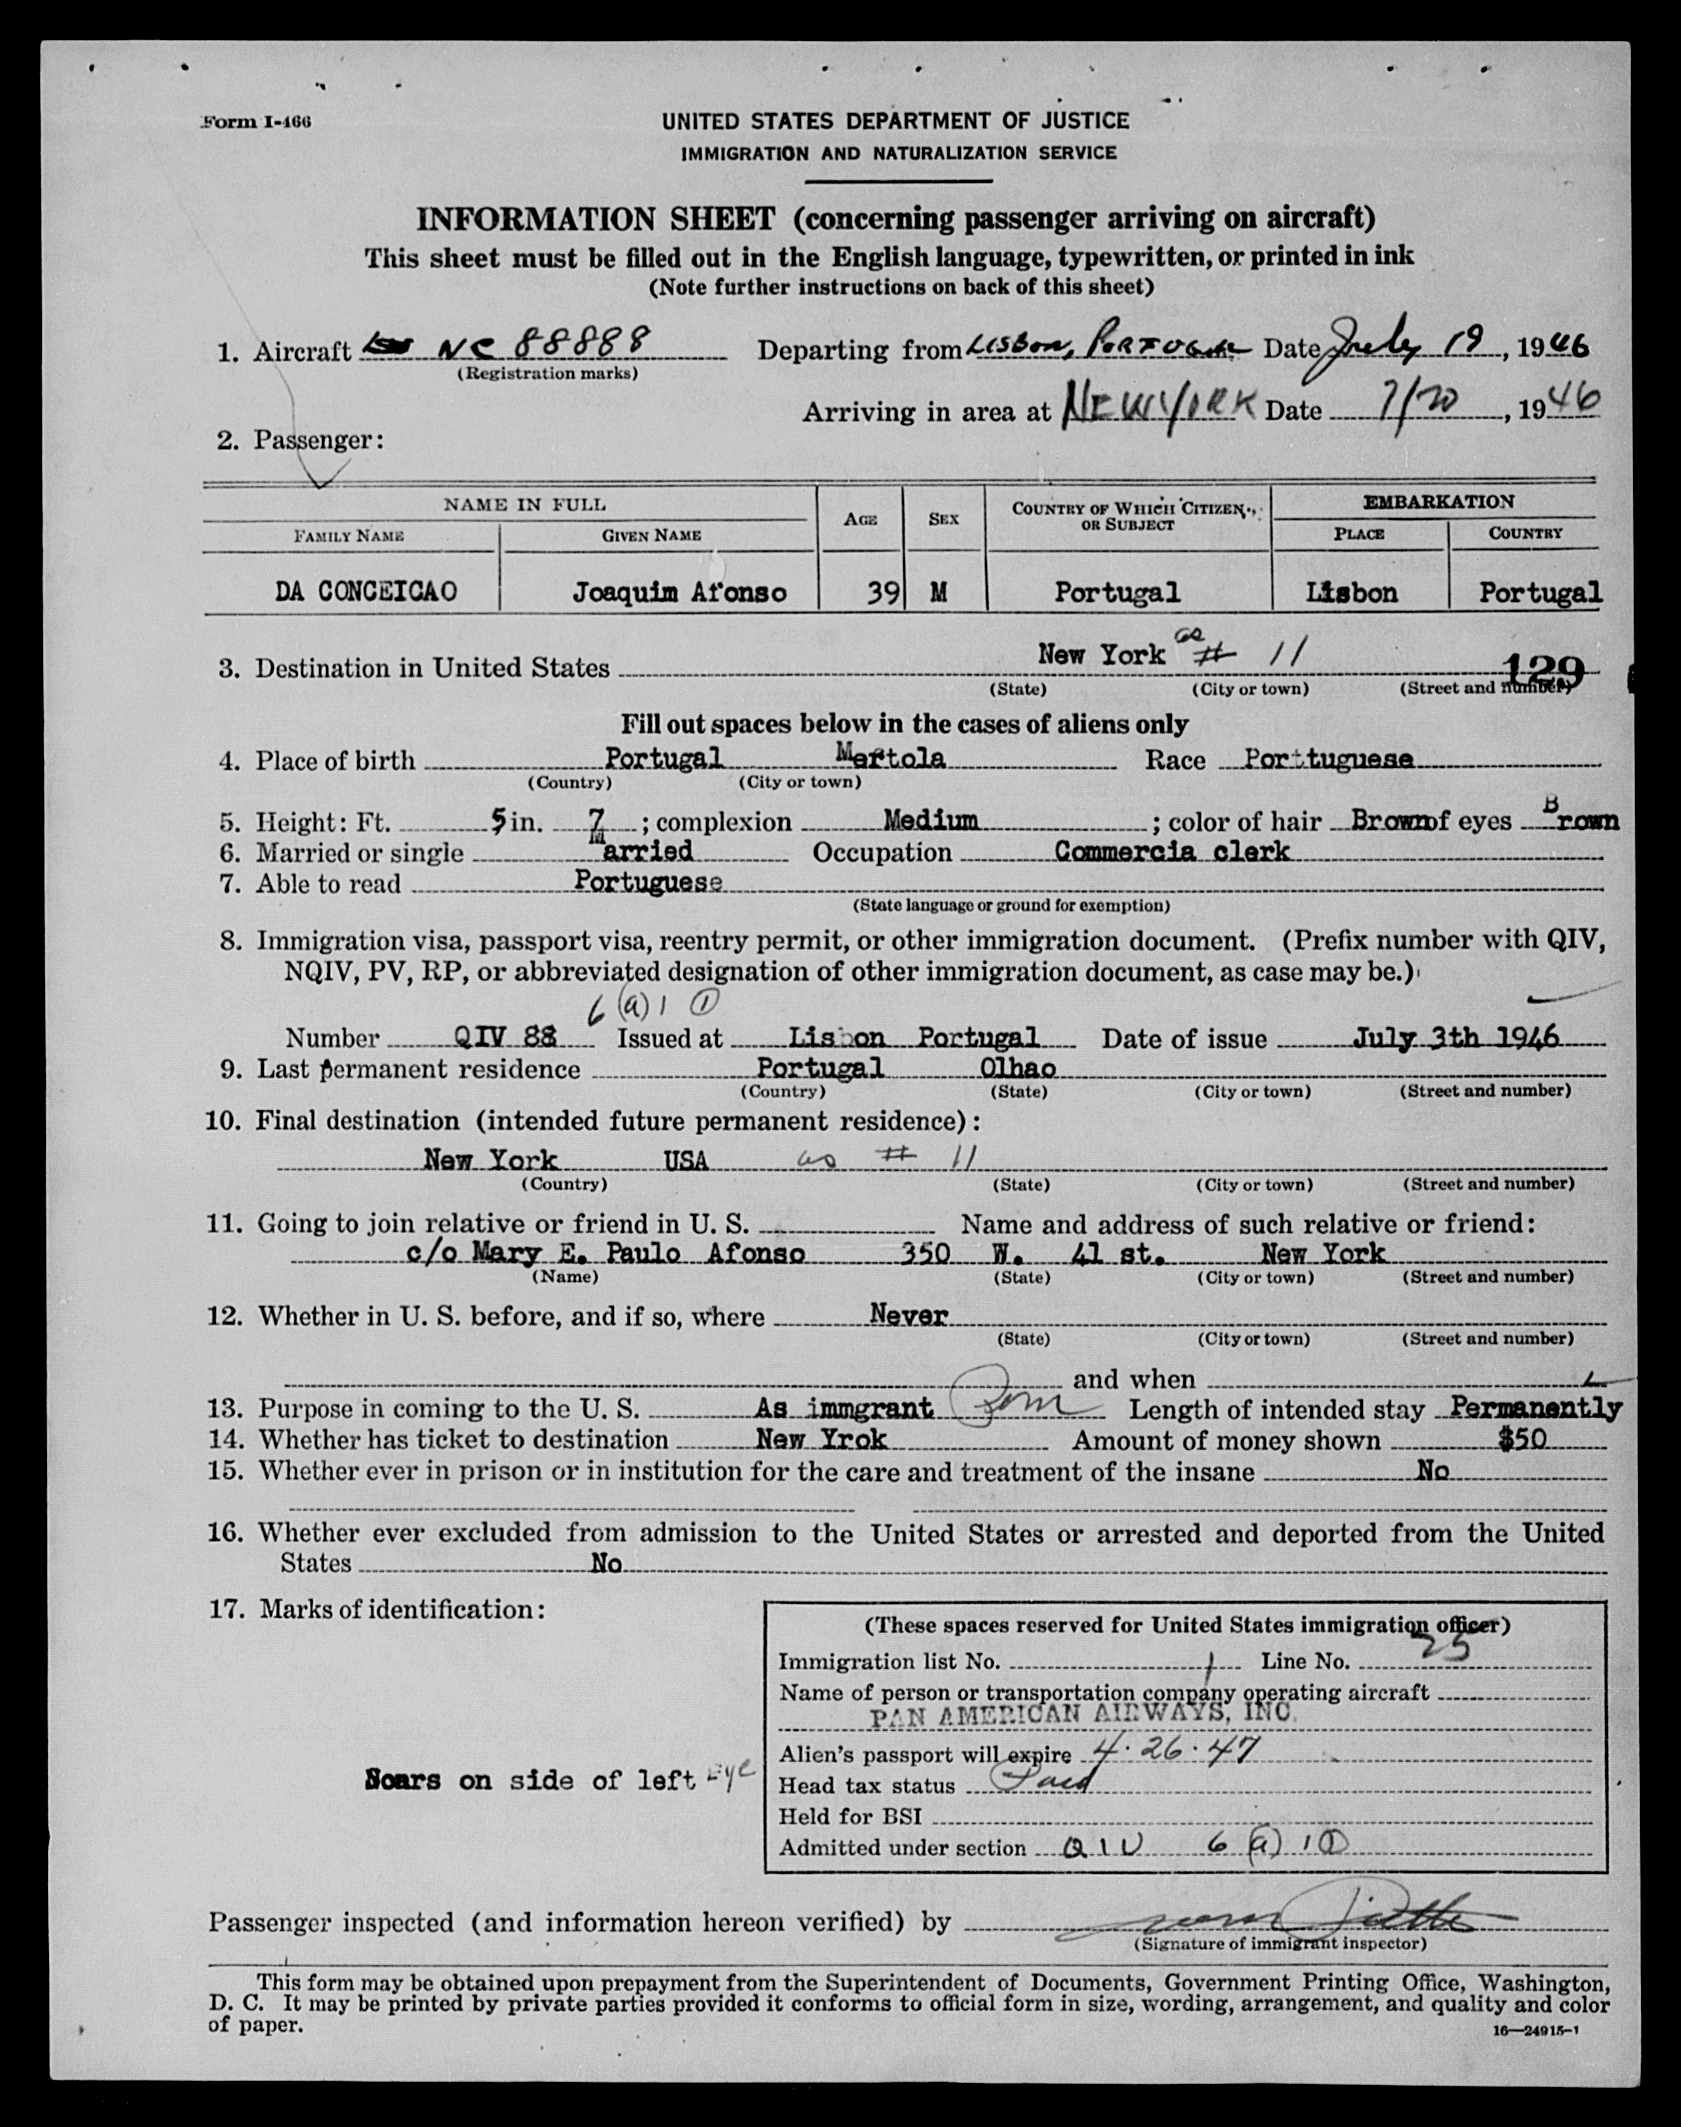 Form I-466
UNITED STATES DEPARTMENT OF JUSTICE
IMMIGRATION AND NATURALIZATION SERVICE
INFORMATION SHEET (concerning passenger arriving on aircraft)
This sheet must be filled out in the English language, typewritten, or printed in ink
(Note further instructions on back of this sheet)
1. Aircraft NC 88888 Departing from LISBON, PORTUGAL Date July 19, 1946
(Registration marks)
Arriving in area at NEW YORK Date 7/20, 1946
2. Passenger:
NAME IN FULL AGE SEX COUNTRY OF WHICH CITIZEN OR SUBJECT EMBARKATION
FAMILY NAME GIVEN NAME PLACE COUNTRY
DA CONCEICAO Joaquim Afonso 39 M Portugal Lisbon Portugal
3. Destination in United States New York as # 11 129
(State) (City or town) (Street and number)
Fill out spaces below in the cases of aliens only
4. Place of birth Portugal Mertola Race Porttuguese
(Country) (City or town)
5. Height: Ft. 5 in. 7; complexion Medium; color of hair Brown of eyes Brown
6. Married or single Married Occupation Commercia clerk
7. Able to read Portuguese
(State language or ground for exemption)
8. Immigration visa, passport visa, reentry permit, or other immigration document. (Prefix number with QIV,
NQIV, PV, RP, or abbreviated designation of other immigration document, as case may be.)
6 (a) 1 ①
Number QIV 88 Issued at Lisbon Portugal Date of issue July 3th 1946
9. Last permanent residence Portugal Olhao
(Country) (State) (City or town) (Street and number)
10. Final destination (intended future permanent residence):
New York USA as # 11
(Country) (State) (City or town) (Street and number)
11. Going to join relative or friend in U. S. Name and address of such relative or friend:
c/o Mary E. Paulo Afonso 350 W. 41 st. New York
(Name) (State) (City or town) (Street and number)
12. Whether in U. S. before, and if so, where Never
(State) (City or town) (Street and number)
and when
13. Purpose in coming to the U. S. As immgrant Length of intended stay Permanently
14. Whether has ticket to destination New Yrok Amount of money shown $50
15. Whether ever in prison or in institution for the care and treatment of the insane No
16. Whether ever excluded from admission to the United States or arrested and deported from the United
States No
17. Marks of identification:
Scars on side of left Eye
(These spaces reserved for United States immigration officer)
Immigration list No. 1 Line No. 25
Name of person or transportation company operating aircraft
PAN AMERICAN AIRWAYS, INC.
Alien's passport will expire 4·26·47
Head tax status Paid
Held for BSI
Admitted under section QIV 6 (a) 1 ①
Passenger inspected (and information hereon verified) by
(Signature of immigrant inspector)
This form may be obtained upon prepayment from the Superintendent of Documents, Government Printing Office, Washington,
D. C. It may be printed by private parties provided it conforms to official form in size, wording, arrangement, and quality and color
of paper.
16—24915-1